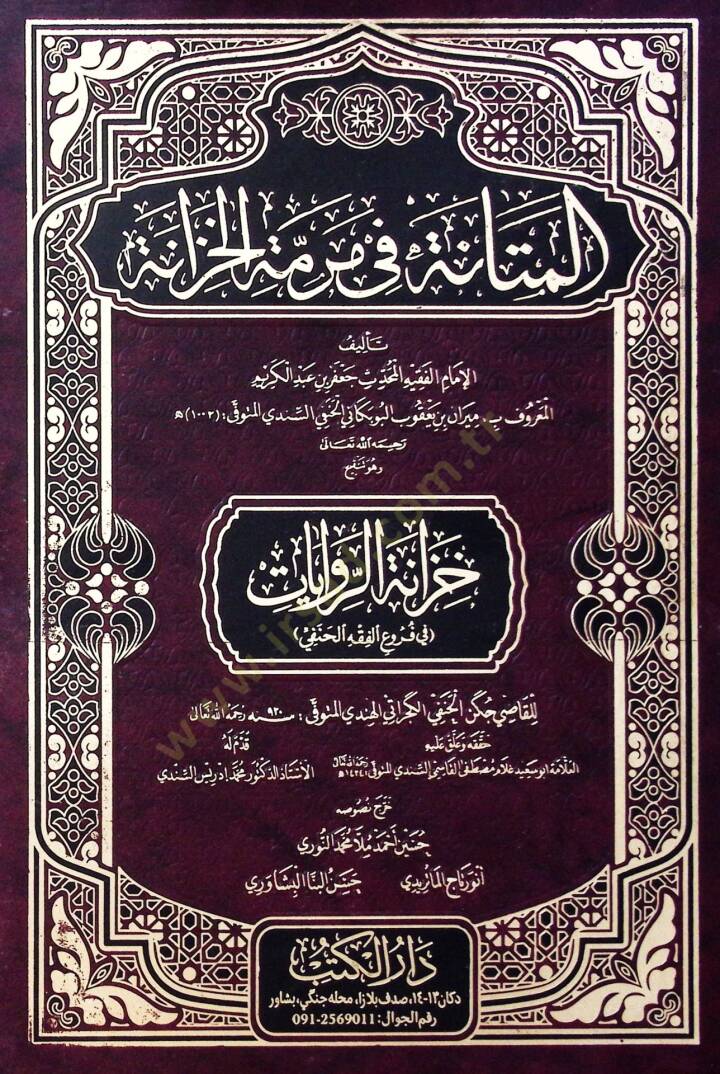 المتانة في مرمّة الخزانة
تأليف
الإمام الفقيه المحدّث جعفر بن عبد الكريم
المعروف بـ ميران بن يعقوب البوبكاني الحنفي السندي المتوفّى: (١٠٠٢) ھ
رحيمه الله تعالى
وهو تنقيح
خزانة الرّوايات
(في فروع الفقه الحنفي)
للقاضي جكن الحنفي الكجراتي الهندي المتوفّى: سنه ٩٢٠ رحمة الله تعالى
حققه وعلق عليه
قدّم له
العلامة ابو سعيد غلام مصطفى القاسمي السندي المتوفّى ١٤٢٤ھ رحمة الله تعالى
الأستاذ الدكتور محمد إدريس السندي
خرّج نصوصه
حسين أحمد ملا محمد النوري
أنور تاج الماتريدي
حسن البنا البشاوري
دار الكتب
دكان ١٣-١٤، صدف پلازا، محله جنگي، پشاور
رقم الجوال: 2569011-091
www.irsad.com.tr